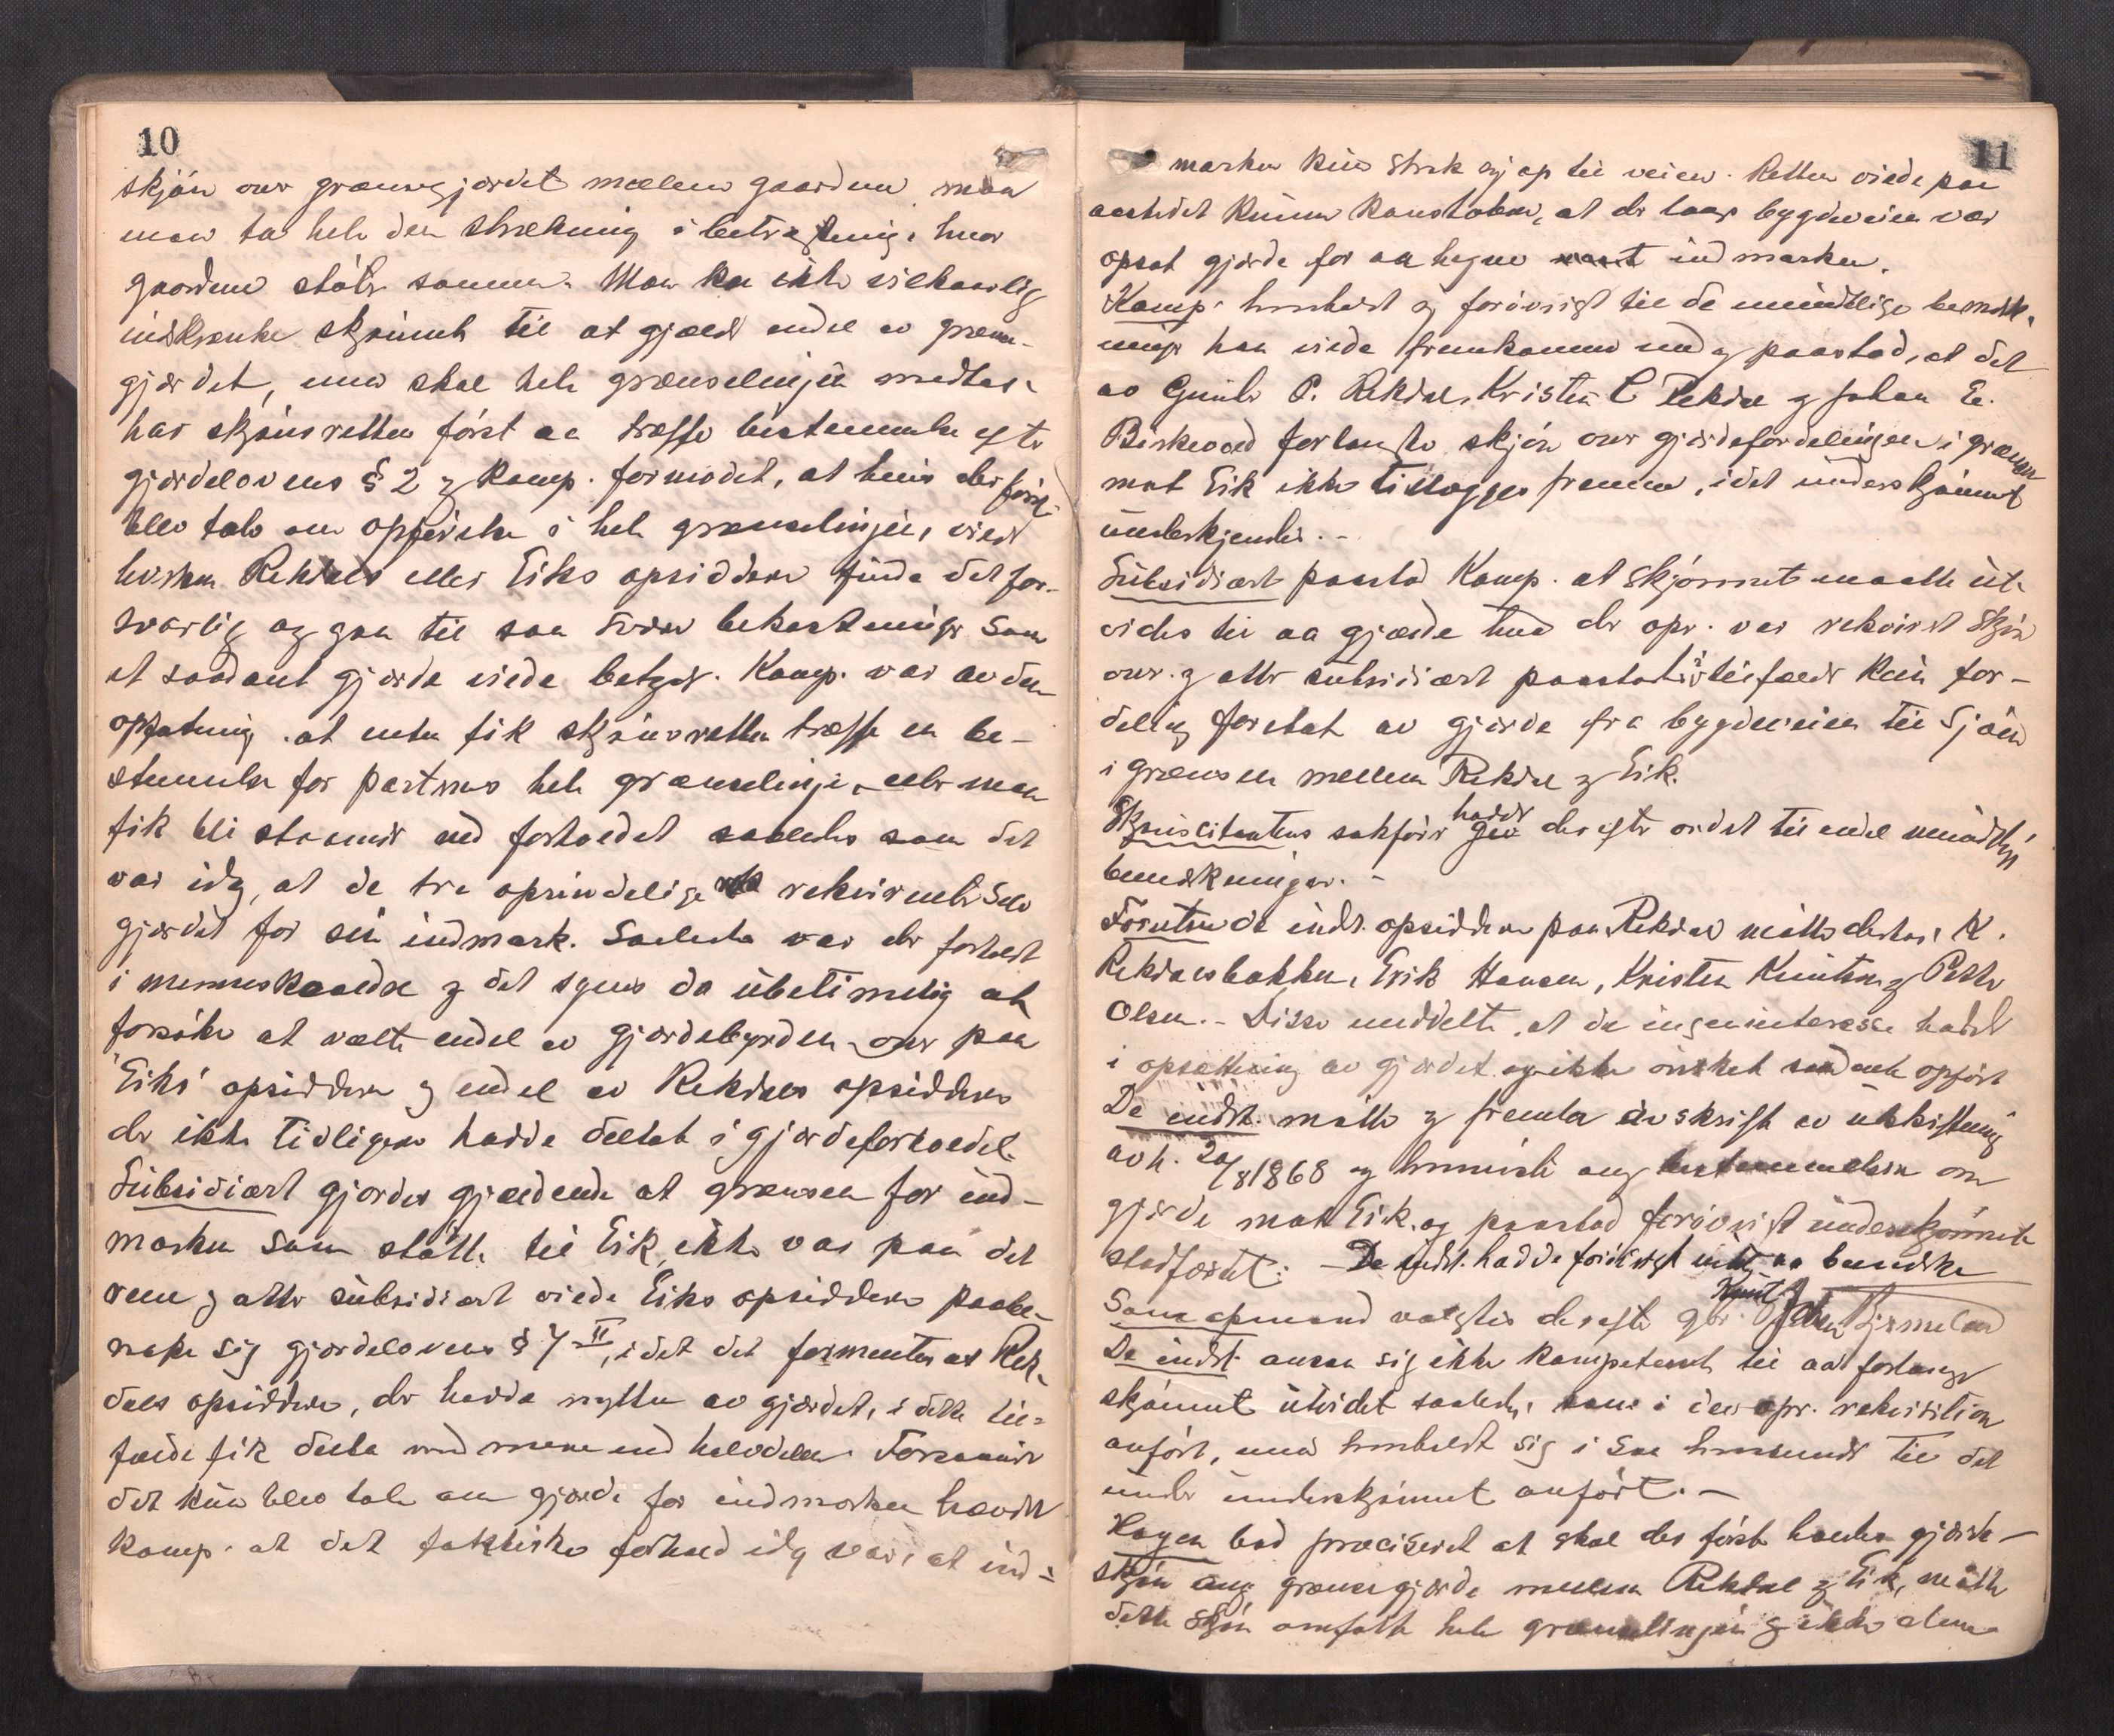 10
skjön over grænsegjerdet mellem gaardene maa
man ta hele den strækning i betragtning, hvor
gaardene støter sammen. Man kan ikke vilkaarlig
indskrænke skjønnet til at gjælde endel av grænse-
gjerdet, men skal hele grænselinjen medtas,
har skjønsretten først aa træffe bestemmelse efter
gjerdelovens § 2 og Komp. formodet, at hvis der først
blev tale om opførelse i hele grænselinjen, vilde
hverken Rekdals eller Eiks opsiddere finde det for-
svarlig og gaa til saa svære bekostninger som
et saadant gjerde vilde betyde. Komp. var av den
opfatning, at enten fik skjønsretten træffe en be-
stemmelse for partenes hele grænselinje, eller man
fik bli staaende ved forholdet saaledes som det
var idag, at de tre oprindelige rekvirenter selv
gjerdet for sin indmark. Saaledes var der forholdt
i menneskealdre og det synes da ubetimelig at
forsøke at vælte endel av gjerdebyrden over paa
Eiks opsiddere og endel av Rekdals opsiddere
der ikke tidligere hadde deltat i gjerdeforholdet.
Subsidiært gjordes gjældende at grænsen for ind-
marken som støtte til Eik, ikke var paa det
rene og atter subsidiært vilde Eiks opsiddere paabe-
rope sig gjerdelovens § 7 II, idet det formentes at Rek-
dals opsiddere, der hadde nytten av gjerdet, i dette til-
fælde fik delta med mere end halvdelen. Forsaavidt
det kun blev tale om gjerde for indmarken hævdet
Komp. at det faktiske forhold idag var, at ind-
11
marken kun strak sig op til veien. Retten vilde paa
aastedet kunne konstatere, at der langs bygdeveien var
opsat gjerde for aa hegne indmarken.
Komp. henholdt sig forøvrigt til de mundtlige bemerk-
ninger han vilde fremkomme med og paastod, at det
av Gunder P. Rekdal, Kristen C Rekdal og Johan E.
Birkevold forlangte skjøn over gjerdefordelingen i grænsen
mot Eik ikke tillægges fremme, idet underskjønnet
underkjendes. -
Subsidiært paastod Komp. at skjønnet maatte ut-
vides til aa gjælde hvad der opr. var rekvirert skjøn
over og atter subsidiært paastod i tilfælde kun for-
deling foretat av gjerde fra bygdeveien til sjøen
i grænsen mellem Rekdal og Eik.
Skjønscitantens sakfører hadde derefter ordet til endel mundtlige
bemerkninger. -
Foruten de indst. opsiddere paa Rekdal møtte desuten K.
Rekdalsbakken, Erik Hansen, Kristen Knutsen og Petter
Olsen. - Disse meddelte, at de ingen interesse hadde
i opsættning av gjerdet og ikke ønsket saadant opført
De indst. møtte og fremla avskrift av utskiftning
avh. 20/8 1868 og henviste ang bestemmelsen om
gjerde mot Eik. og paastod forøvrigt underskjønnet
stadfæstet: - De indst. hadde forøvrigt intet aa bemerke
Som opmand valgtes derefter gbr. Knut Bjermeland
De indst. ansaa sig ikke kompetent til aa forlange
skjønnet utvidet saaledes som i den opr. rekvisition
anført, men henholdt sig i saa henseende til det
under underskjønnet anført. -
Hagen bad præciseret at skal der først holdes gjerde-
skjøn ang grænsegjerde mellem Rekdal og Eik, maatte
dette skjøn omfatte hele grænselinjen og ikke alene